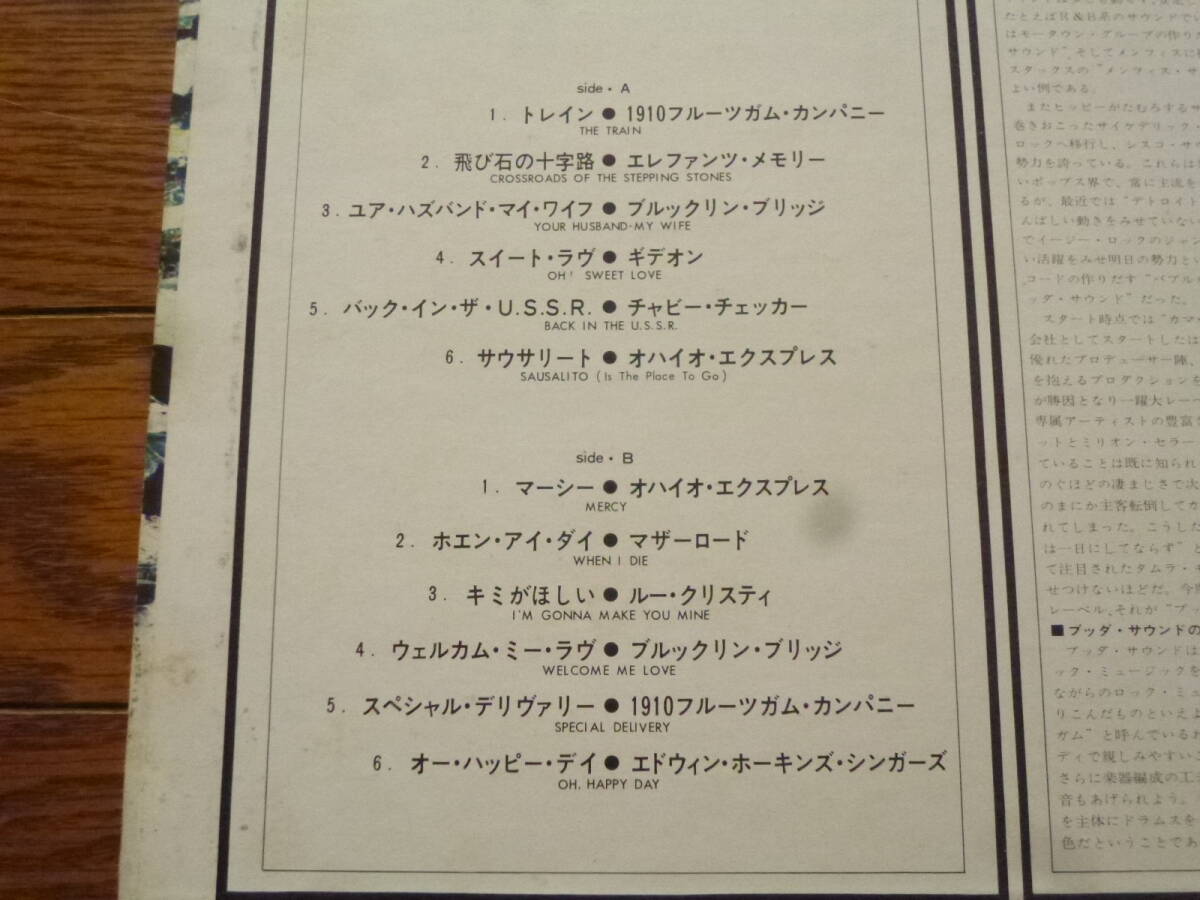 side・A
1. トレイン ● 1910フルーツガム・カンパニー
THE TRAIN
2. 飛び石の十字路 ● エレファンツ・メモリー
CROSSROADS OF THE STEPPING STONES
3. ユア・ハズバンド・マイ・ワイフ ● ブルックリン・ブリッジ
YOUR HUSBAND-MY WIFE
4. スイート・ラヴ ● ギデオン
OH! SWEET LOVE
5. バック・イン・ザ・U.S.S.R. ● チャビー・チェッカー
BACK IN THE U.S.S.R.
6. サウサリート ● オハイオ・エクスプレス
SAUSALITO (Is The Place To Go)
side・B
1. マーシー ● オハイオ・エクスプレス
MERCY
2. ホエン・アイ・ダイ ● マザーロード
WHEN I DIE
3. キミがほしい ● ルー・クリスティ
I'M GONNA MAKE YOU MINE
4. ウェルカム・ミー・ラヴ ● ブルックリン・ブリッジ
WELCOME ME LOVE
5. スペシャル・デリヴァリー ● 1910フルーツガム・カンパニー
SPECIAL DELIVERY
6. オー・ハッピー・デイ ● エドウィン・ホーキンズ・シンガーズ
OH, HAPPY DAY
たとえばR&B系のサウンドで
はモータウン・グループの作りだ
サウンド”、そしてメンフィスに
スタックスの“メンフィス・サ
よい例である。
またヒッピーがたむろするサ
巻きおこったサイケデリック・
ロックへ移行し、シスコ・サウ
勢力を誇っている。これらは
いポップス界で、常に主流を
るが、最近では“デトロイト
んばしい動きをみせていない
でイージー・ロックのジャン
い活躍をみせ明日の勢力とい
コードの作りだす“バブル
ッダ・サウンド”だった。
スタート時点では“カマ・
会社としてスタートしたは
優れたプロデューサー陣、
を抱えるプロダクションを
が勝因となり一躍大レーベ
専属アーティストの豊富
ットとミリオン・セラー
ていることは既に知られ
のぐほどの凄まじさで次
のまにか主客転倒してカ
れてしまった。こうした
は一日にしてならず”と
て注目されたタムラ・モ
せつけないほどだ。今
レーベル、それが“ブッ
■ブッダ・サウンドの
ブッダ・サウンドは
ック・ミュージックを
ながらのロック・ミュ
りこんだものといえよ
ガム”と呼んでいるれ
ディで親しみやすいこ
さらに楽器編成の工
音もあげられよう。
を主体にドラムスを
色だということであ